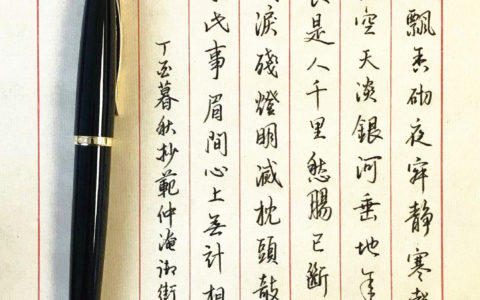 飄香砌夜寂静寒
空天淡銀河垂地年
是人千里愁腸已斷
淚殘燈明滅枕頭敧
此事眉間心上无計相
丁酉暮秋抄範仲淹御街